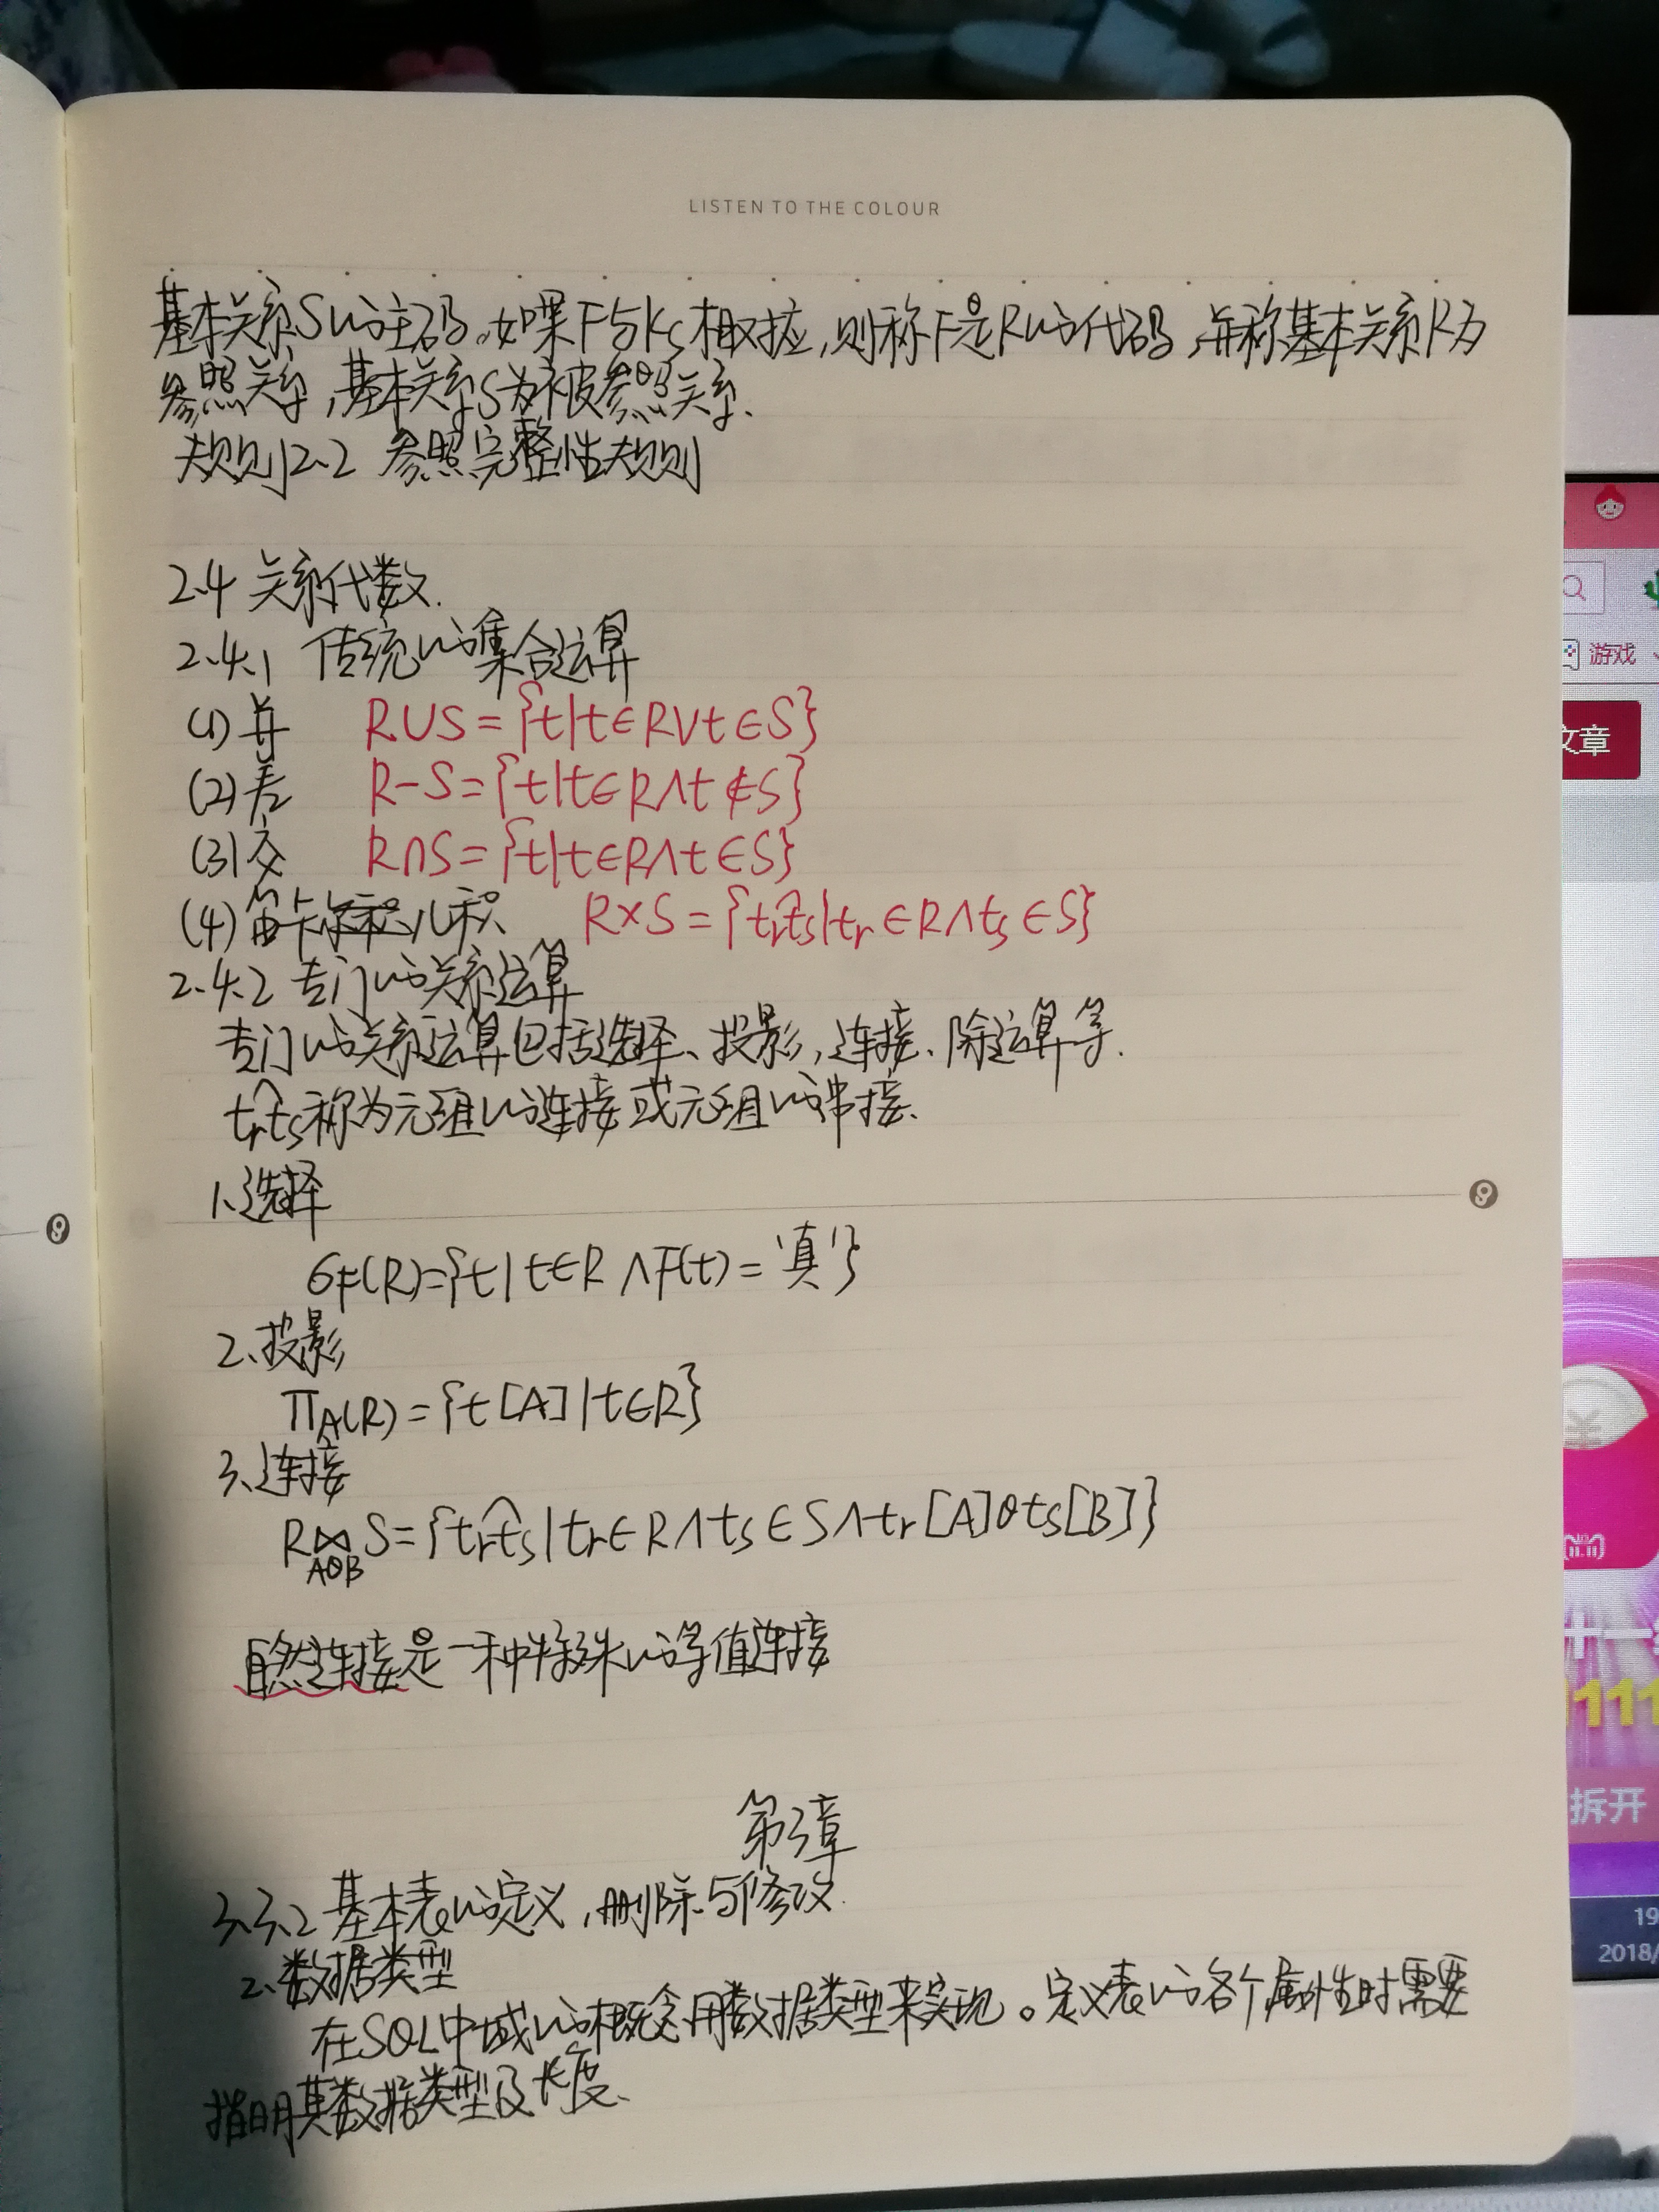 LISTEN TO THE COLOUR
基本关系S的主码。如果F与Ks相对应,则称F是R的代码,并称基本关系R为
参照关系,基本关系S为被参照关系.
规则2.2 参照完整性规则
2.4 关系代数.
2.4.1 传统的集合运算
(1)并 R∪S={t|t∈R∨t∈S}
(2)差 R-S={t|t∈R∧t∉S}
(3)交 R∩S={t|t∈R∧t∈S}
(4)笛卡尔积 R×S={tr⌒ts|tr∈R∧ts∈S}
2.4.2 专门的关系运算
专门的关系运算包括选择、投影,连接、除运算等.
tr⌒ts称为元组的连接或元组的串接.
1.选择
σF(R)={t|t∈R∧F(t)='真'}
2.投影
ΠA(R)={t[A]|t∈R}
3.连接
R⋈S={tr⌒ts|tr∈R∧ts∈S∧tr[A]θts[B]}
AθB
自然连接是一种特殊的等值连接
第3章
3.3.2 基本表的定义,删除与修改.
2.数据类型
在SQL中域的概念用数据类型来实现。定义表的各个属性时需要
指明其数据类型及长度.
游戏
文章
十一
1111
拆开
19
2018/